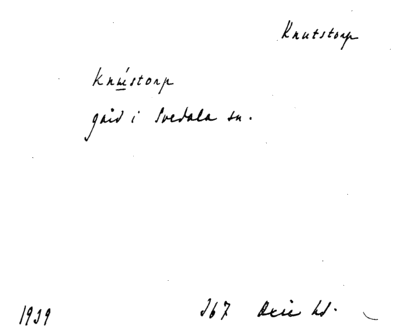 Knutstorp
knústorp
gård i Svedala sn.
1939 367 Oxie hd.